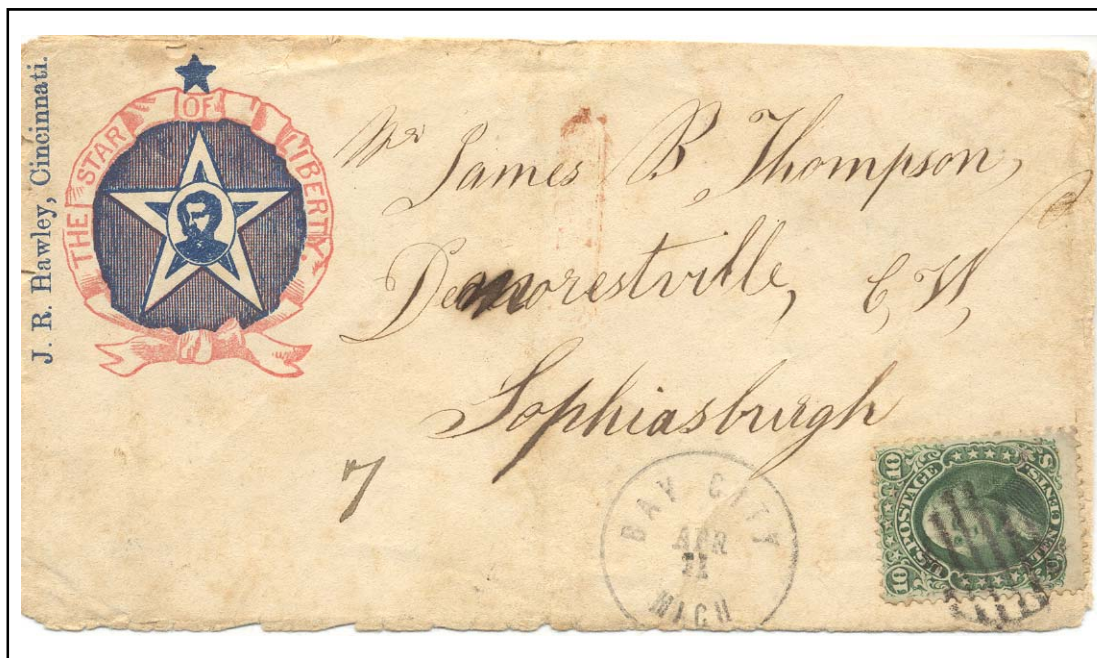 J. R. Hawley, Cincinnati.
THE STAR OF LIBERTY.
Mr James B Thompson,
Demorestville, C, W,
Sophiasburgh
7
BAY CITY
APR
21
MICH
U.S. POSTAGE
TEN CENTS
10
10